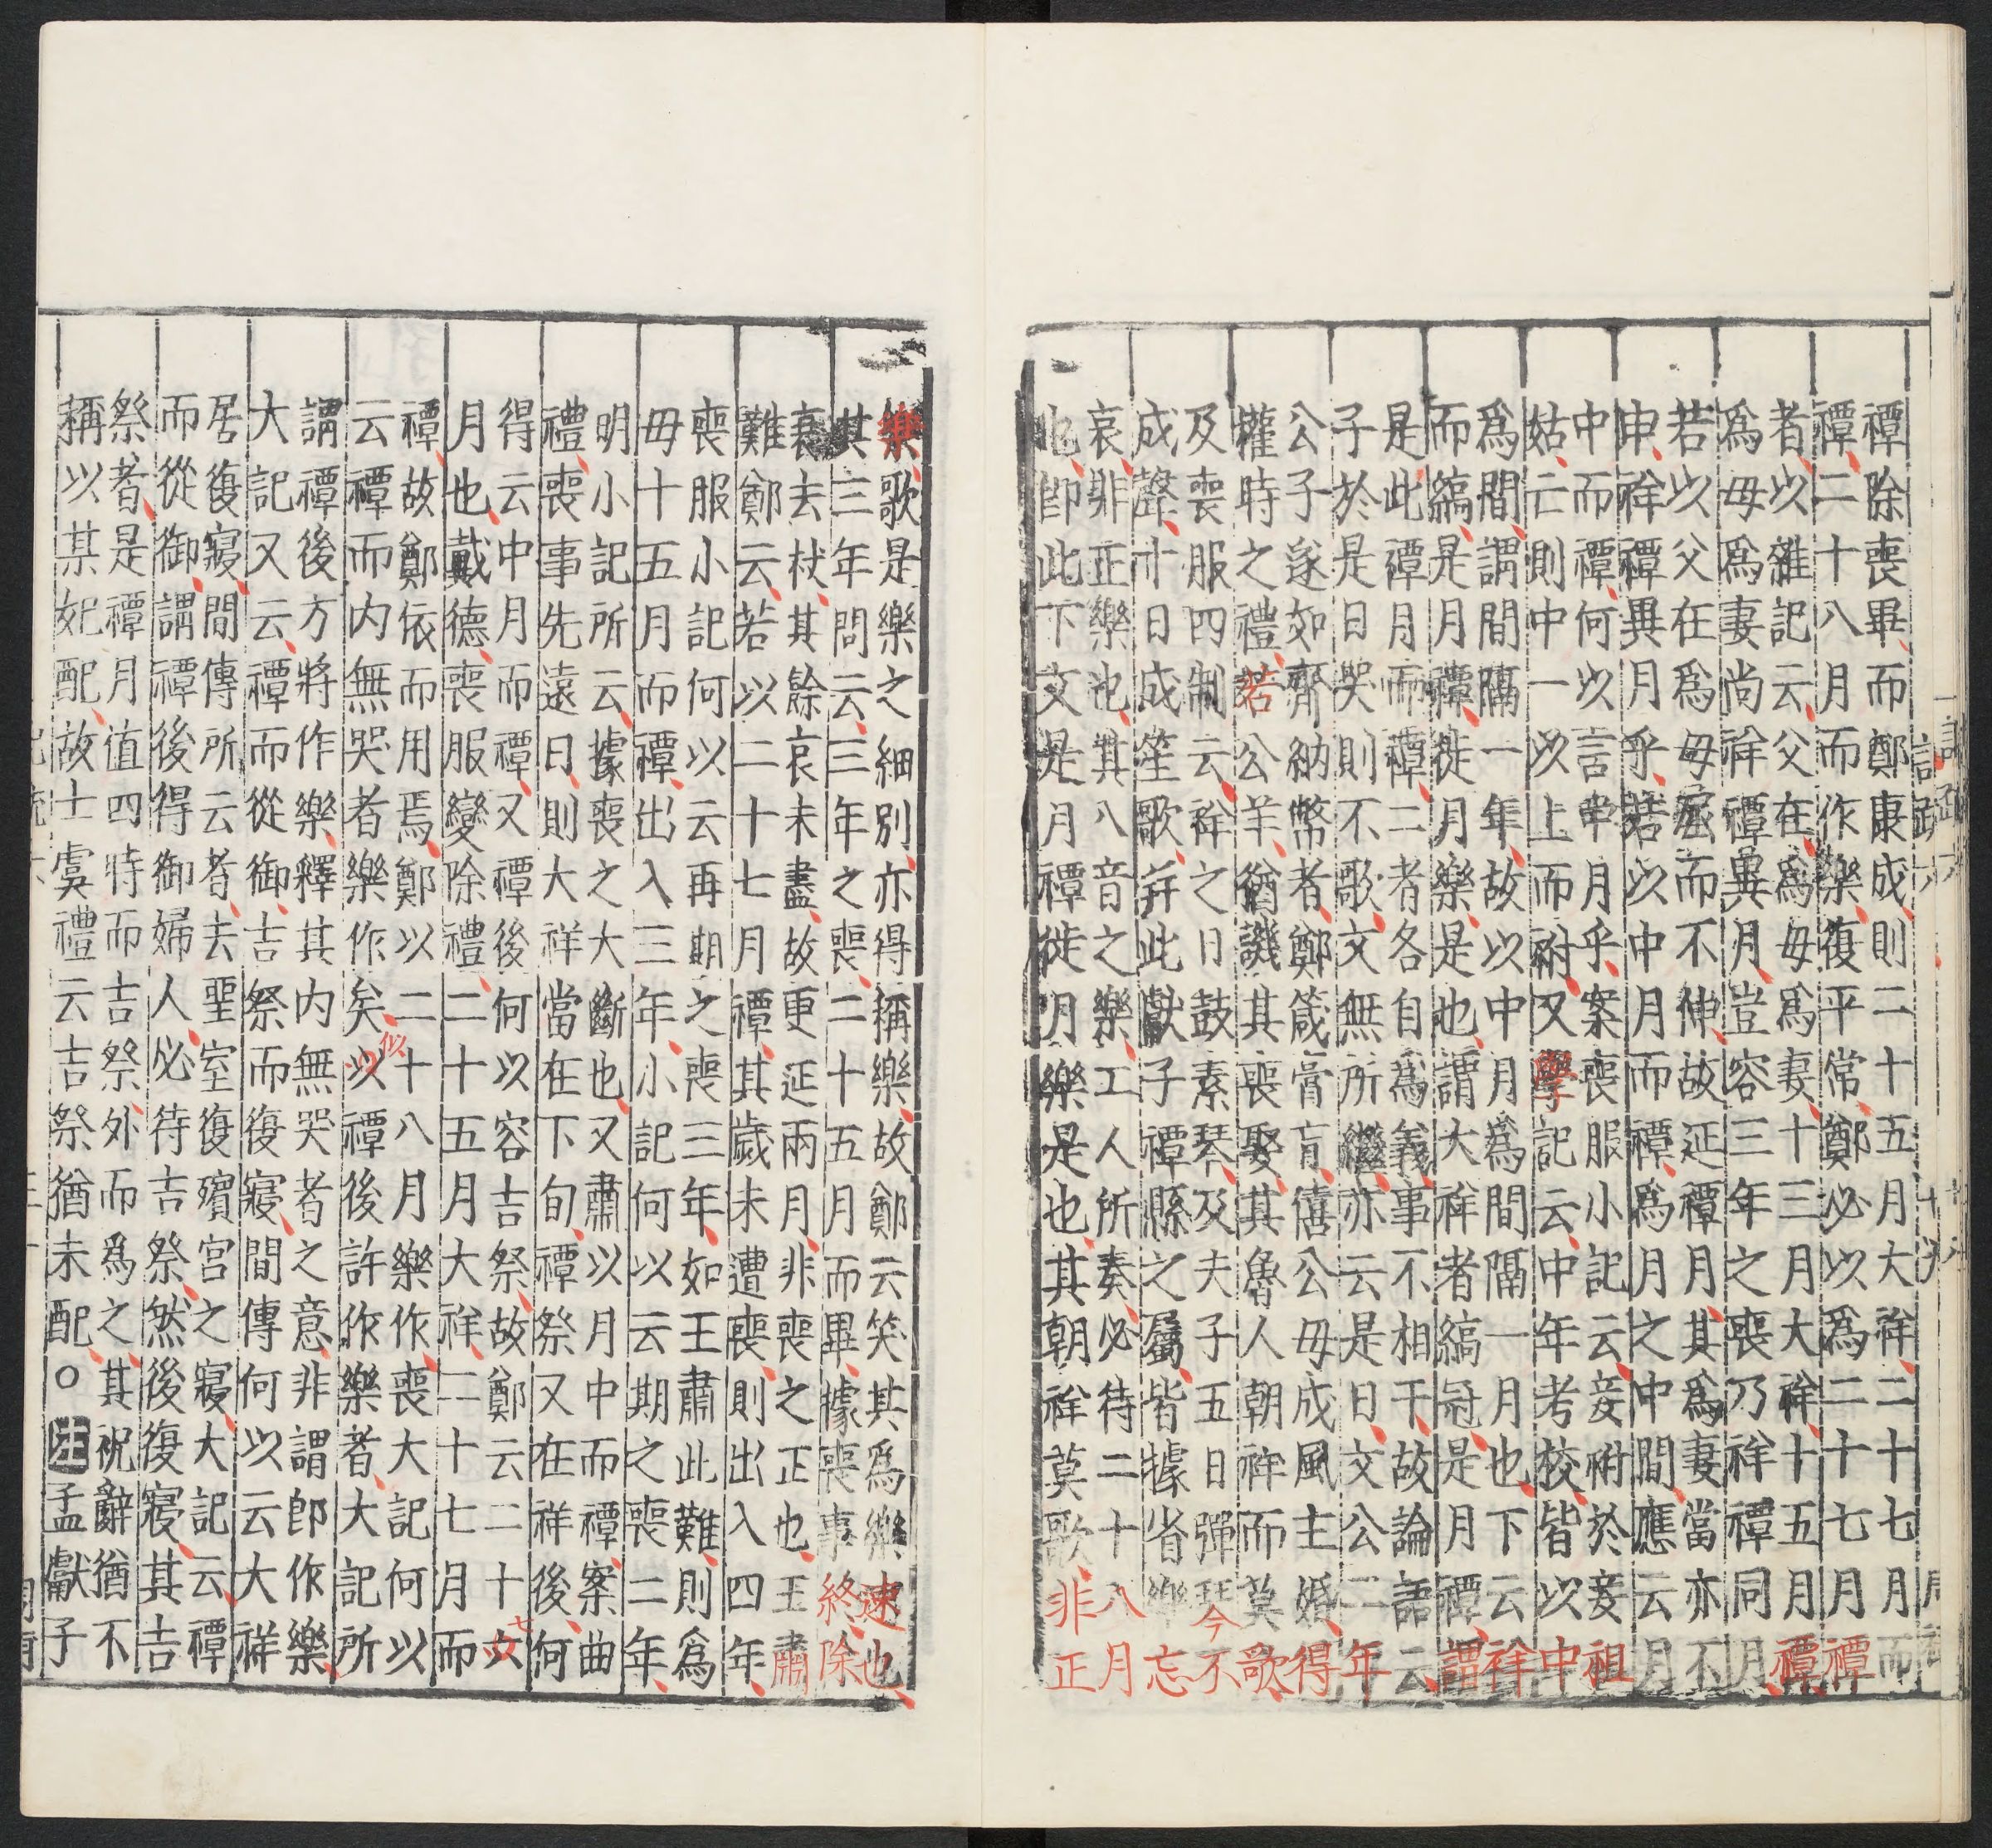 禫除喪畢而鄭康成則二十五月大祥二十七月而
禫二十八月而作樂復平常鄭必以爲二十七月禫
者以雜記云父在爲母爲妻十三月大祥十五月禫
爲母爲妻尚祥禫異月豈容三年之喪乃祥禫同月
若以父在爲母屈而不伸故延禫月其爲妻當亦不
申祥禫異月乎若以中月而禫爲月之中間應云月
中而禫何以言中月乎案喪服小記云妾祔於妾祖
姑亡則中一以上而祔又學記云中年考校皆以中
爲間謂間隔一年故以中月爲間隔一月也下云祥
而縞是月禫徙月樂是也謂大祥者縞冠是月禫謂
是此禫月而禫二者各自爲義事不相干故論語云
子於是日哭則不歌文無所繼亦云是日文公二年
公子遂如齊納幣者鄭箴膏肓僖公母成風主婚得
權時之禮若公羊猶譏其喪娶其魯人朝祥而莫歌
及喪服四制云祥之日鼓素琴及夫子五日彈琴今不
成聲十日成笙歌并此獻子禫縣之屬皆據省樂忘
哀非正樂也其八音之樂工人所奏必待二十八月
也即此下文是月禫徙月樂是也其朝祥莫歌非正
樂歌是樂之細別亦得稱樂故鄭云笑其爲樂速也
其三年問云三年之喪二十五月而畢據喪事終除
衰去杖其餘哀未盡故更延兩月非喪之正也王肅
難鄭云若以二十七月禫其歲未遭喪則出入四年
喪服小記何以云再期之喪三年如王肅此難則爲
母十五月而禫出入三年小記何以云期之喪二年
明小記所云據喪之大斷也又肅以月中而禫案曲
禮喪事先遠日則大祥當在下旬禫祭又在祥後何
得云中月而禫又禫後何以容吉祭故鄭云二十七
月也戴德喪服變除禮二十五月大祥二十七月而
禫故鄭依而用焉鄭以二十八月樂作喪大記何以
云禫而内無哭者樂作矣以似禫後許作樂者大記所
謂禫後方將作樂釋其内無哭者之意非謂即作樂
大記又云禫而從御吉祭而復寢間傳何以云大祥
居復寢間傳所云者去堊室復殯宮之寢大記云禫
而從御謂禫後得御婦人必待吉祭然後復寢其吉
祭者是禫月值四時而吉祭外而爲之其祝辭猶不
稱以某妃配故士虞禮云吉祭猶未配○注孟獻子